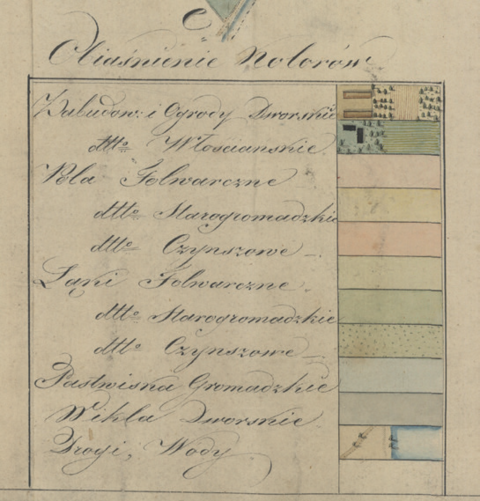 Obiaśnienie Kolorów
Zabudow: i Ogrody Dworskie
dtto Włosciańskie.
Pola Folwarczne
dtto Starogromadzkie
dtto Czynszowe
Łąki Folwarczne
dtto Starogromadzkie
dtto Czynszowe
Pastwiska Gromadzkie
Wikla Dworskie
Drogi, Wody